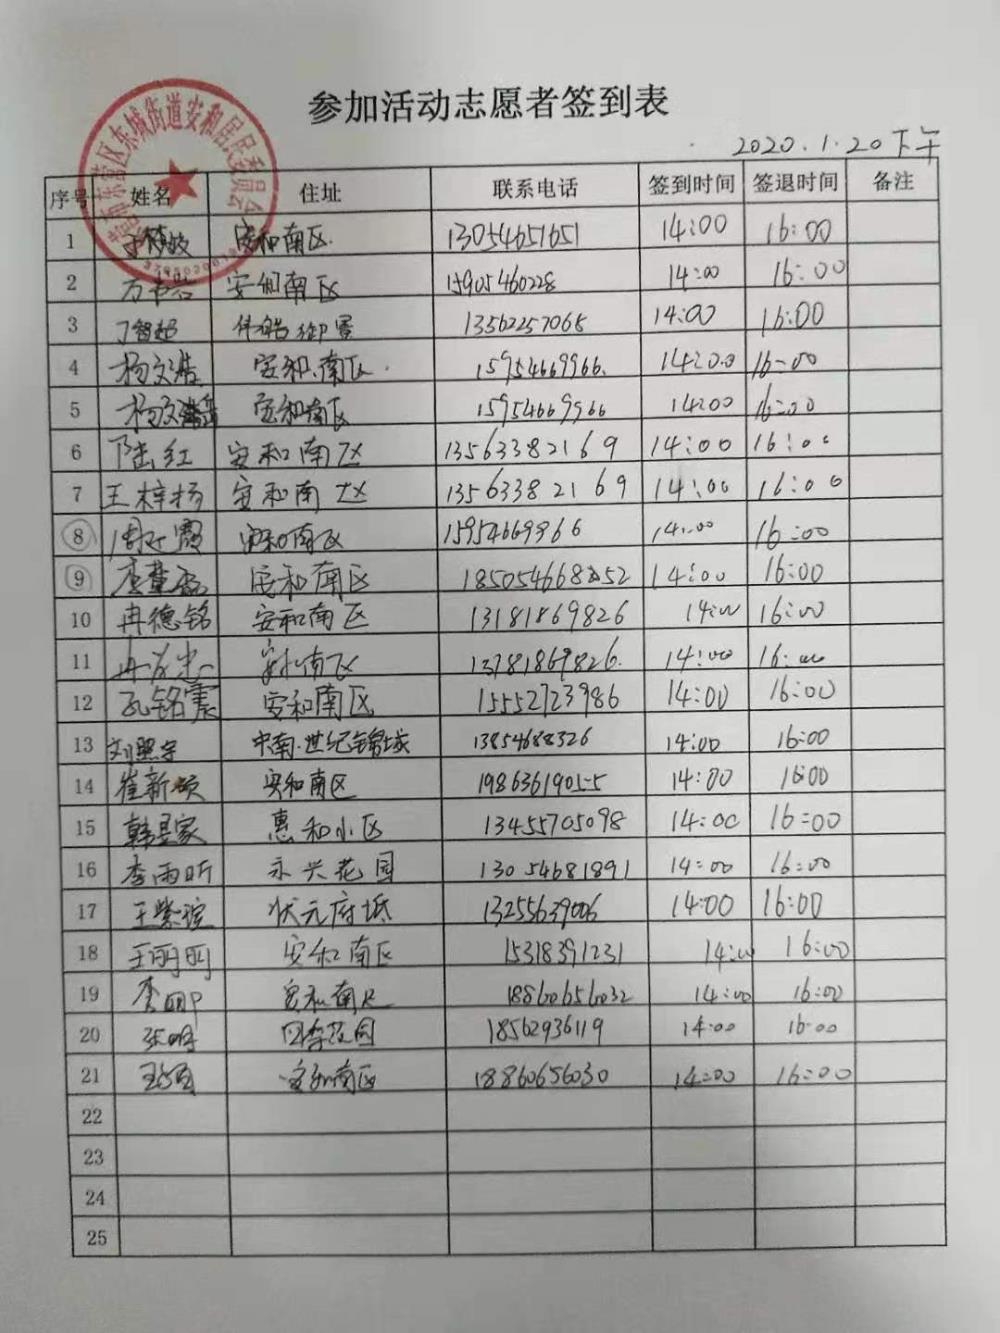 参加活动志愿者签到表
2020.1.20下午
东营区东城街道安和居民委员会
序号 姓名 住址 联系电话 签到时间 签退时间 备注
1 安和南区 13054651651 14:00 16:00
2 安和南区 15905460228 14:00 16:00
3 丁智超 13562257065 14:00 16:00
4 杨文浩 安和南区 15954669966 14:00 16:00
5 安和南区 15954669966 14:00 16:00
6 陆红 安和南区 13563382169 14:00 16:00
7 王梓扬 安和南区 13563382169 14:00 16:00
8 安和南区 15954669966 14:00 16:00
9 安和南区 14:00 16:00
10 冉德铭 安和南区 13181869826 14:00 16:00
11 安和南区 14:00 16:00
12 孔铭震 安和南区 15552723986 14:00 16:00
13 刘熙宇 中南·世纪锦城 13854688326 14:00 16:00
14 崔新硕 安和南区 19863619055 14:00 16:00
15 韩昱家 惠和小区 13455705098 14:00 16:00
16 李雨昕 永兴花园 13054681891 14:00 16:00
17 王紫瑄 状元府邸 13255639006 14:00 16:00
18 王丽丽 安和南区 15318391231 14:00 16:00
19 安和南区 18860656032 14:00 16:00
20 张明 18562936119 14:00 16:00
21 安和南区 18860656030 14:00 16:00
22
23
24
25